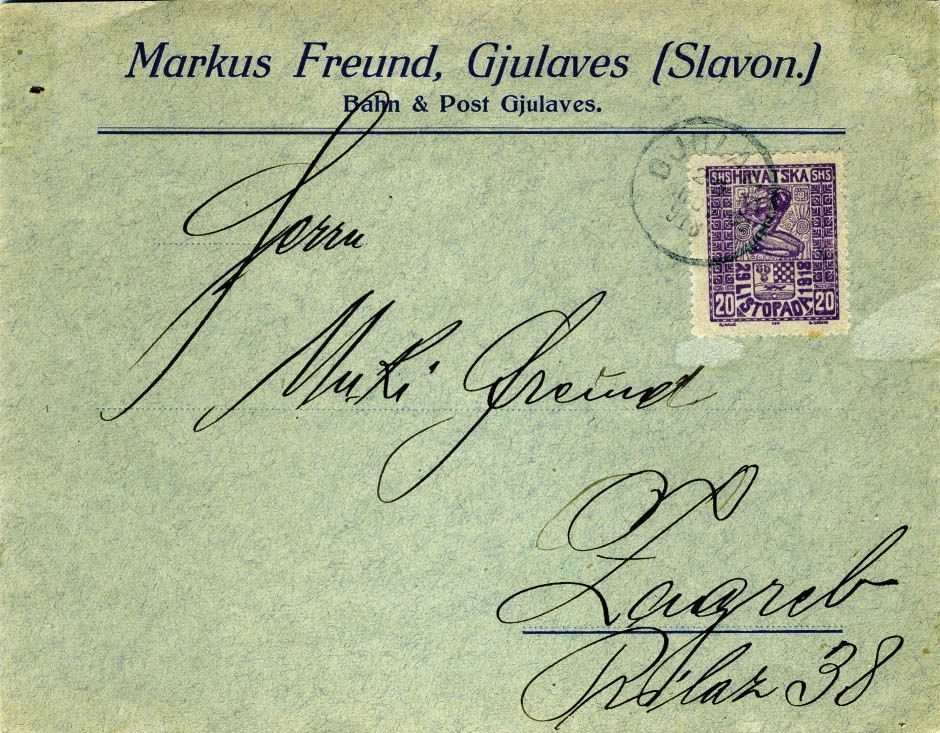 Markus Freund, Gjulaves (Slavon.)
Bahn & Post Gjulaves.
SHS HRVATSKA SHS
29 LISTOPADA 1918
20 20
Herrn
Muki Freund
Zagreb
Prilaz 38